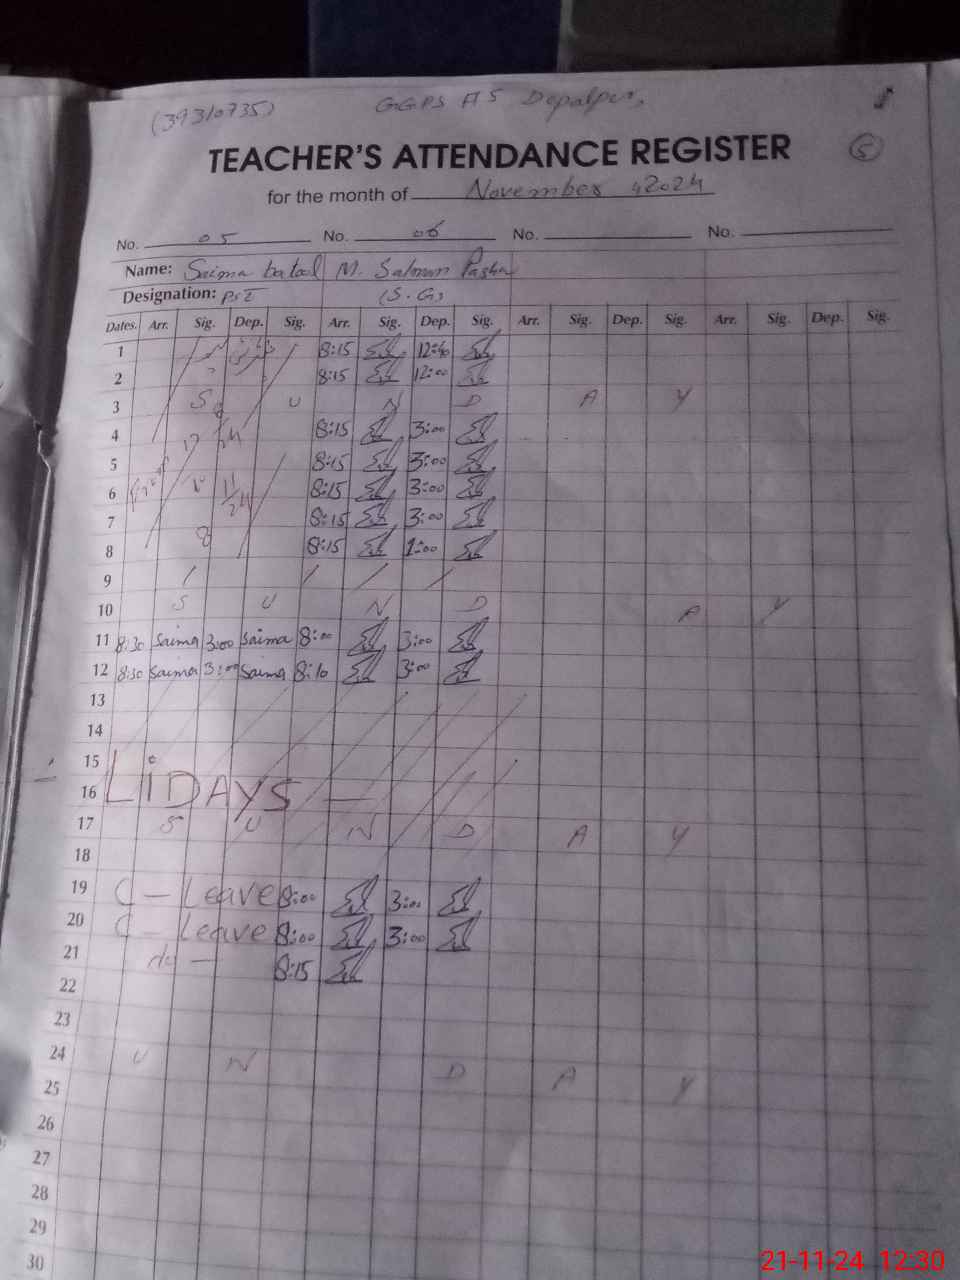 (39310735) GGPS A5 Depalpur,
TEACHER'S ATTENDANCE REGISTER 5
for the month of November, 2024
No. 05 No. 06 No. No.
Name: Saima batool M. Salman Pasha
Designation: PST (S.G)
Dates. Arr. Sig. Dep. Sig. Arr. Sig. Dep. Sig. Arr. Sig. Dep. Sig. Arr. Sig. Dep. Sig.
1 8:15
2 8:15 12:00
3 S U N D A Y
4 8:15 3:00
5 8:15 3:00
6 8:15 3:00
7 8:15 3:00
8 8:15 1:00
9
10 S U N D A Y
11 8:30 Saima 3:00 Saima 8:00 3:00
12 8:30 Saima 3:00 Saima 8:10 3:00
13
14
15
16 LiDAYS —
17 S U N D A Y
18
19 C - Leave 8:00 3:00
20 C - Leave 8:00 3:00
21 do - 8:15
22
23
24 U N D A Y
25
26
27
28
29
30
21-11-24 12:30